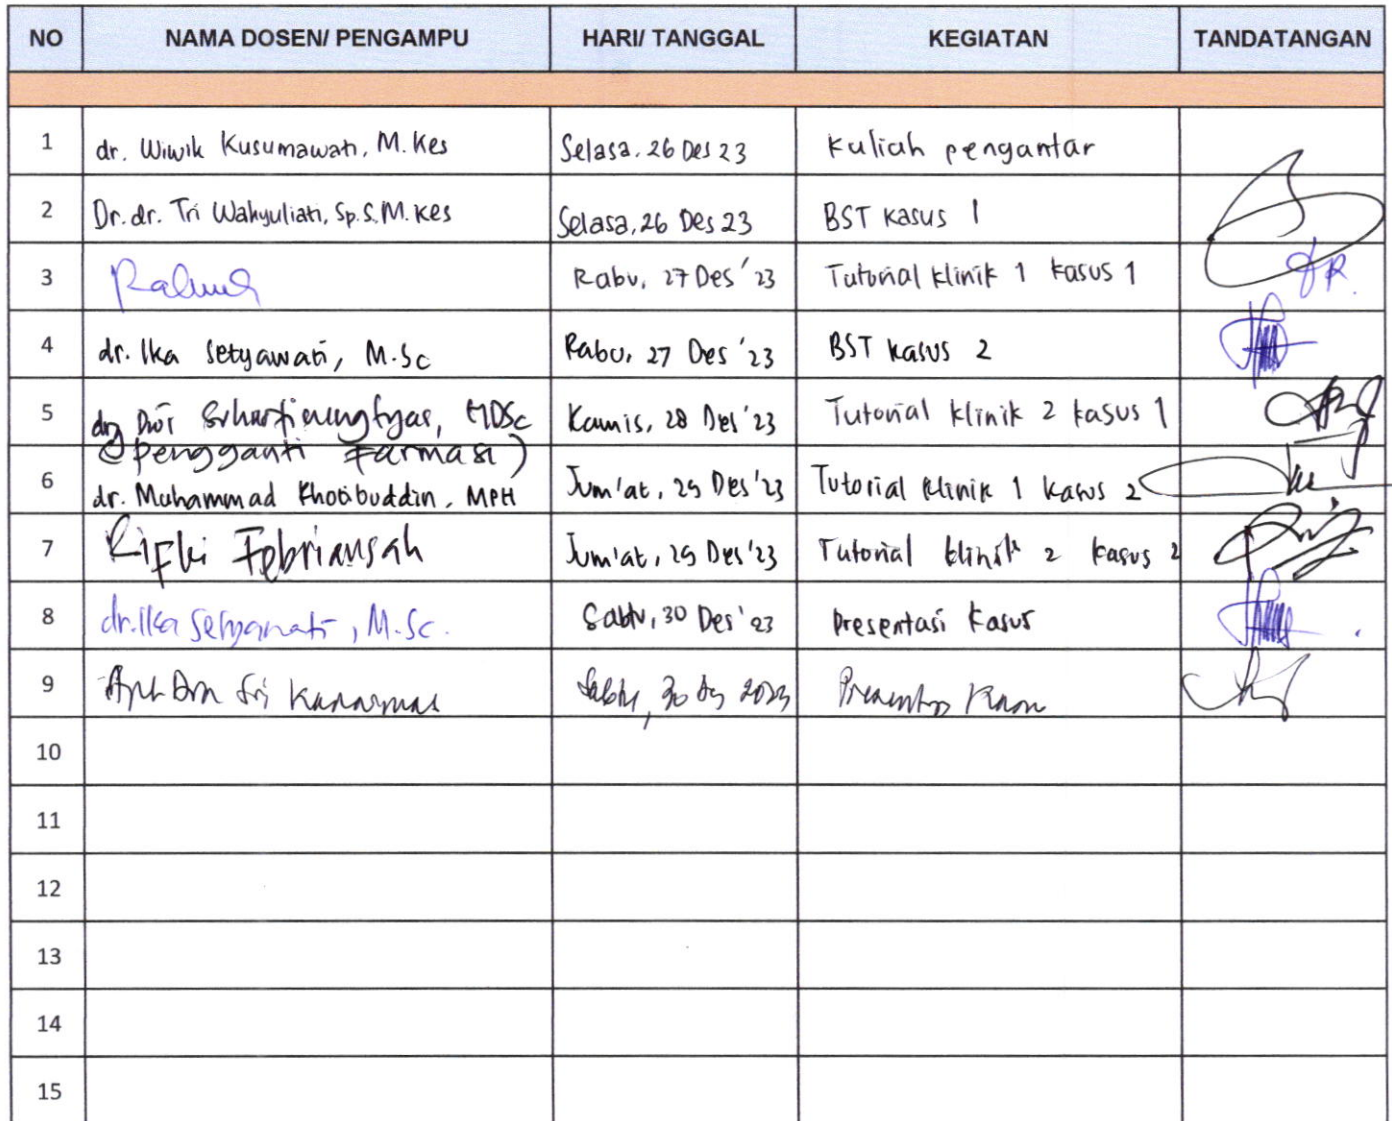 NO NAMA DOSEN/ PENGAMPU HARI/ TANGGAL KEGIATAN TANDATANGAN
1 dr. Wiwik Kusumawati, M.Kes Selasa, 26 Des 23 Kuliah pengantar
2 Dr. dr. Tri Wahyuliati, Sp.S, M.Kes Selasa, 26 Des 23 BST Kasus 1
3 Rabu, 27 Des '23 Tutorial Klinik 1 Kasus 1
4 dr. Ika Setyawati, M.Sc Rabu, 27 Des '23 BST Kasus 2
5 MDSc Kamis, 28 Des '23 Tutorial Klinik 2 Kasus 1
pengganti Farmasi)
6 dr. Muhammad Khotibuddin, MPH Jum'at, 29 Des '23 Tutorial Klinik 1 Kasus 2
7 Rifki Febriansah Jum'at, 29 Des '23 Tutorial Klinik 2 Kasus 2
8 dr. Ika Setyawati, M.Sc. Sabtu, 30 Des '23 Presentasi Kasus
9 Sri Sabtu, 30 2023
10
11
12
13
14
15